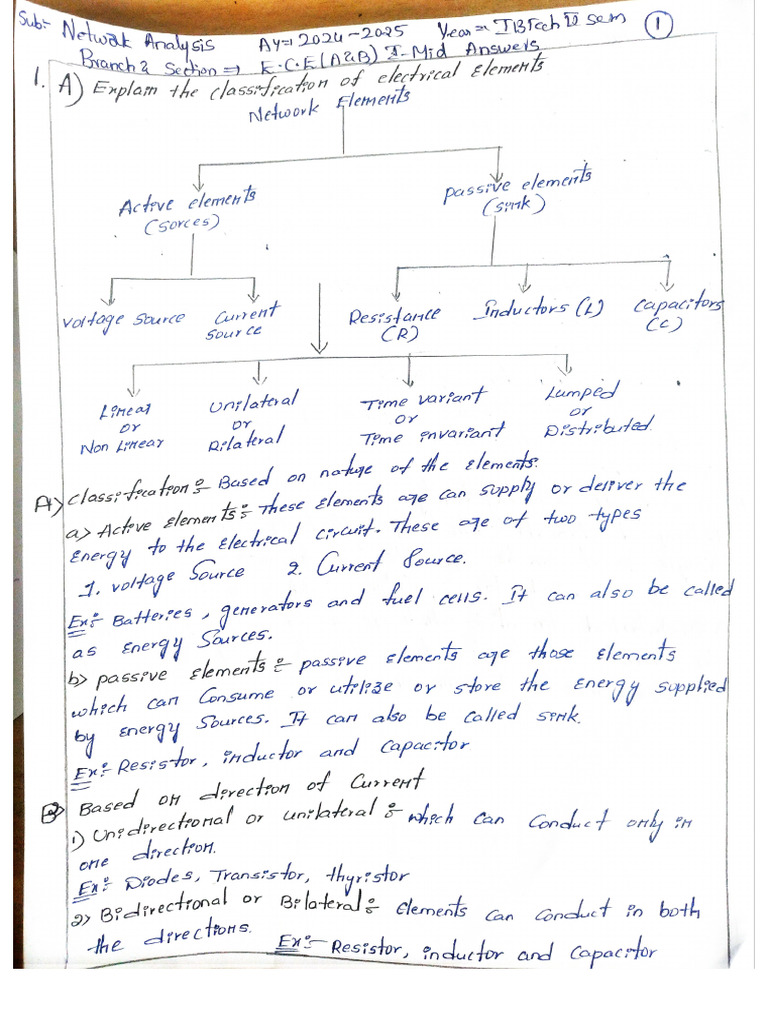 Sub:- Network Analysis AY=) 2024-2025 Year=) I BTech II Sem 1
Branch & Section => E.C.E (A&B) I-Mid Answers
1. A) Explain the classification of electrical Elements
Network Elements
Active elements passive elements
(Sorces) (sink)
Voltage Source Current Resistance Inductors (L) Capacitors
Source (R) (C)
Linear Unilateral Time variant Lumped
or or or or
Non Linear Bilateral Time invariant Distributed
A) Classification :- Based on nature of the elements.
a) Active Elements :- These Elements are can supply or deliver the
Energy to the Electrical circuit. These are of two types
1. Voltage Source 2. Current Source.
Ex:- Batteries, generators and fuel cells. It can also be called
as Energy Sources.
b) passive Elements :- passive Elements are those Elements
which can Consume or utilize or store the Energy supplied
by Energy Sources. It can also be called sink.
Ex:- Resistor, inductor and capacitor
B) Based on direction of Current
1) Unidirectional or unilateral :- which can Conduct only in
one direction.
Ex:- Diodes, Transistor, thyristor
2) Bidirectional or Bilateral :- Elements can conduct in both
the directions. Ex:- Resistor, inductor and capacitor